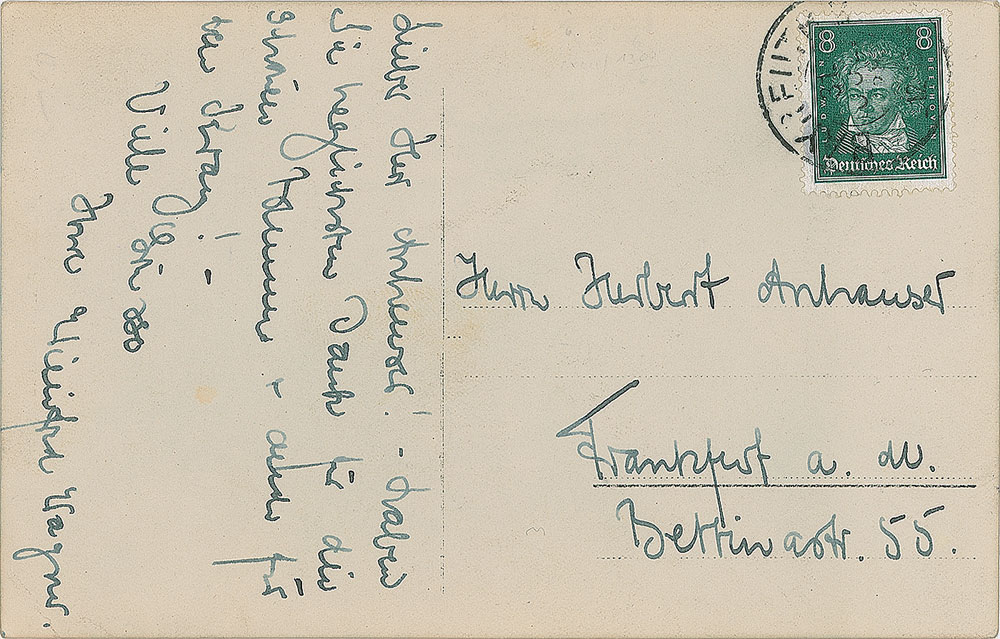 Lieber Herr Anhauser! - Haben
Sie herzlichsten Dank für die
schönen +  für
Viele
Ihre Winifred Wagner.
8 8
LUDWIG VAN BEETHOVEN
Deutsches Reich
Herrn Herbert Anhauser
Frankfurt a. M.
Bettinastr. 55.